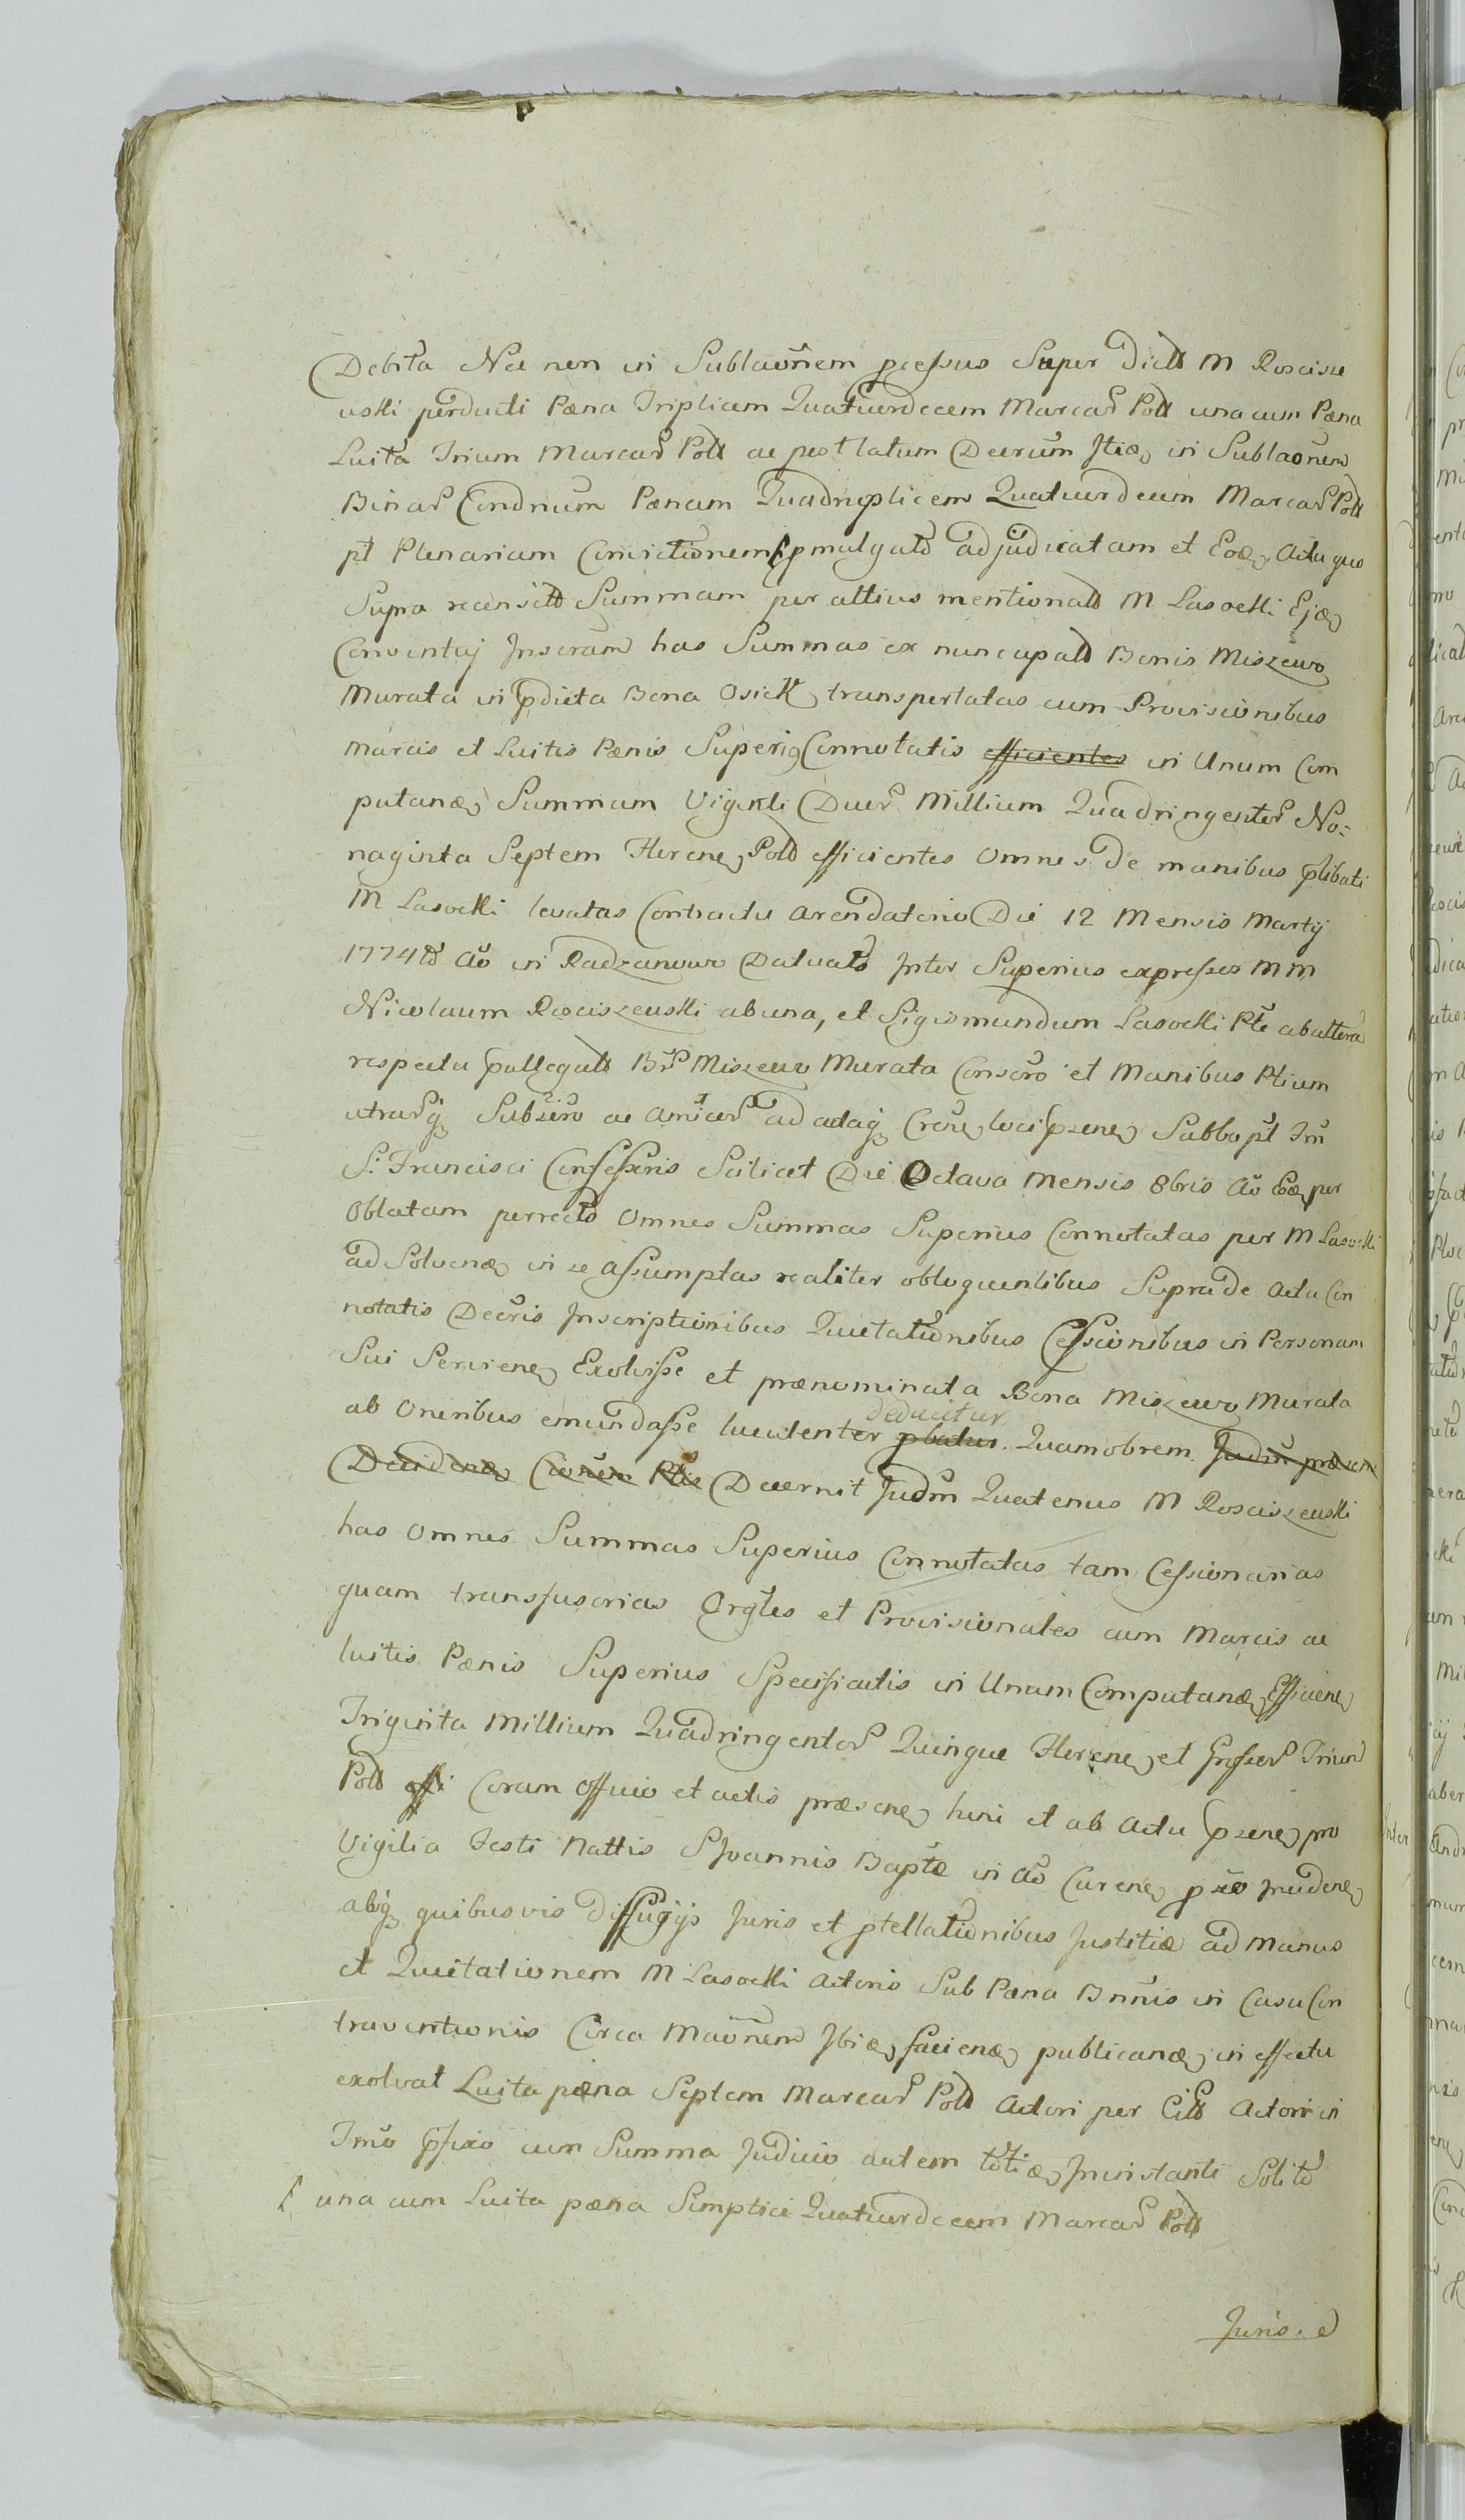 Debita Nec non in Sublaonem pcessus Super dictt M Roscisze
uski perducti Pæna Triplicem Quatuordecem Marcar Poll una cum Pæna
Luita Trium Marcar Poll ac post latum Decrum Itiæ, in Sublaonem
Binar Condnum Pænam Quadruplicem Quatuordecem Marcar Poll
pt Plenariam Convictionem pmulgato adjudicatam et Eoæ, Actu quo
Supra recensitt Summam per altius mentionatt M Lasocki Ejæ,
Conventaj Inseram has Summas ex nuncupatt Bonis Miszewo
Murata in pdicta Bona Osiek, transportatas cum Provisionibus
marcis et Luitis Pænis Superig Connotatis efficientes in Unum Com
putanæ, Summam Viginti Duor Millium Quadringentor No=
naginta Septem Florene, Poll efficientes Omnes de manibus plibati
M Lasocki levatas Contractu Arendatorio Die 12 Mensis Martij
1774to Ao in Radzanowo Datuato Inter Superius expressos MM
Nicolaum Rosciszeuski ab una, et Sigismundum Lasocki Pte ab altera
respectu pallegatt Br Miszewo Murata Consoro et Manibus Ptium
utrarq Subsiro ac Amicor ad actaq Crone, loci psene, Sabbo pt Im
S. Francisci Confessoris Scilicet Die Octava Mensis 8bris Ao Eoæ, per
Oblatam perrecto Omnes Summas Superius Connotatas per M Lasocki
ad Solvenæ, in se assumptas realiter obloquentibus Supra de Actu Con
notatis Decris Inscriptionibus Quietationibus Cessionibus in Personam
Sui Serviene, Exolvisse et prænominata Bona Miszewo Murata
ab Oneribus emundasse luculenter pbatus deducitur. Quamobrem Judm præsen
Decidenæ, Ptis Decernit Judm Quatenus M Rosciszeuski
has Omnes Summas Superius Connotatas tam Cessionarias
quam transfusorias Orgles et Provisionales cum Marcis ac
luitis Pænis Superius Specificatis in Unum Computanæ, Efficiene,
Triginta Millium Quadringentor Quinque Florene, et Grossor Trium
Poll Coram Officio et actis præsene, huni et ab Actu psene, pro
Vigilia Festi Nattis S Joannis Baptæ in Ao Curene, pxo Incidene,
absq quibusvis diffugijs Juris et ptellationibus Justitiæ ad manus
et Quietationem M Lasocki Actoris Sub Pæna Bnnis in Casu Con
traventionis Circa Maonem Ibiæ, facienæ, publicanæ, in effectu
exolvat Luita pæna Septem Marcar Poll Actori per Citt Actori in
Imo pfixo cum Summa Judicio autem totiæ, Ininstanti Solito
una cum Luita pæna Simplici Quatuordecem Marcar Poll
Juris. e